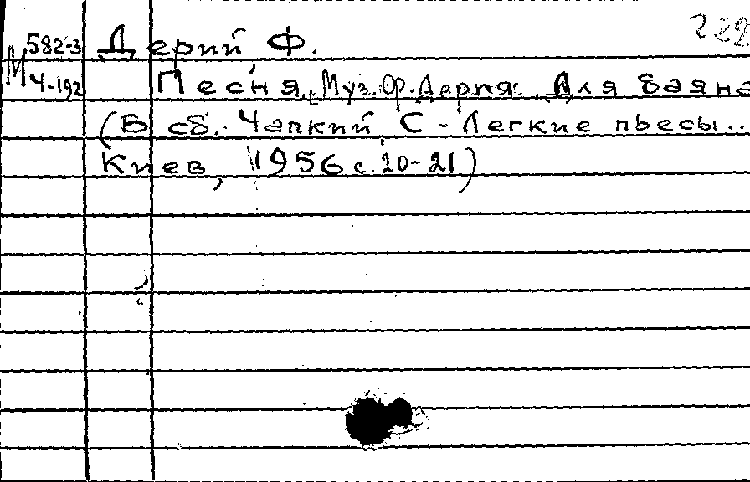 582-3 Дерий, Ф. 222
М Ч-192 Песня. Муз. Ф. Дерия. Для баяна
(В сб.: Чапкий, С - Легкие пьесы..
Киев, 1956 с. 20-21)